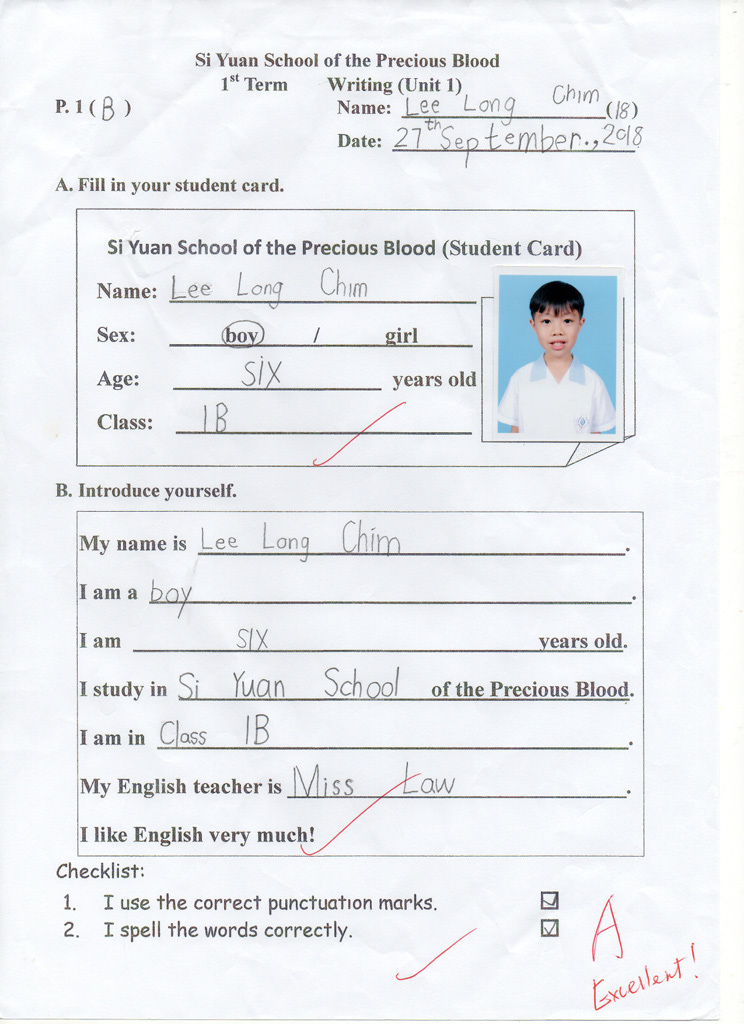 Si Yuan School of the Precious Blood
1st Term Writing (Unit 1)
P. 1 ( B ) Name: Lee Long Chim (18)
Date: 27th September., 2018
A. Fill in your student card.
Si Yuan School of the Precious Blood (Student Card)
Name: Lee Long Chim
Sex: boy / girl
Age: six years old
Class: 1B
B. Introduce yourself.
My name is Lee Long Chim .
I am a boy .
I am six years old.
I study in Si Yuan School of the Precious Blood.
I am in Class 1B .
My English teacher is Miss Law .
I like English very much!
Checklist:
1. I use the correct punctuation marks.
2. I spell the words correctly.
A
Excellent!